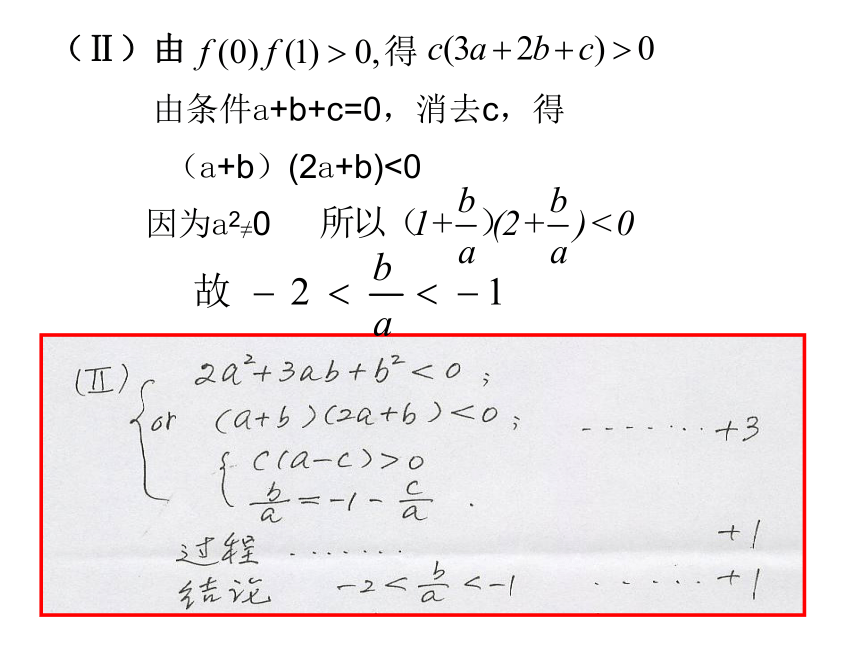 （Ⅱ）由 f(0)f(1)>0,得 c(3a+2b+c)>0
由条件a+b+c=0，消去c，得
（a+b）(2a+b)<0
因为a²≠0 所以（1+b/a）(2+b/a)<0
故 −2<b/a<−1
(Ⅱ) { 2a²+3ab+b²<0 ;
or (a+b)(2a+b)<0 ; ------- +3
{ c(a-c)>0
b/a=-1-c/a .
过程 ······· +1
结论 -2<b/a<-1 ······ +1